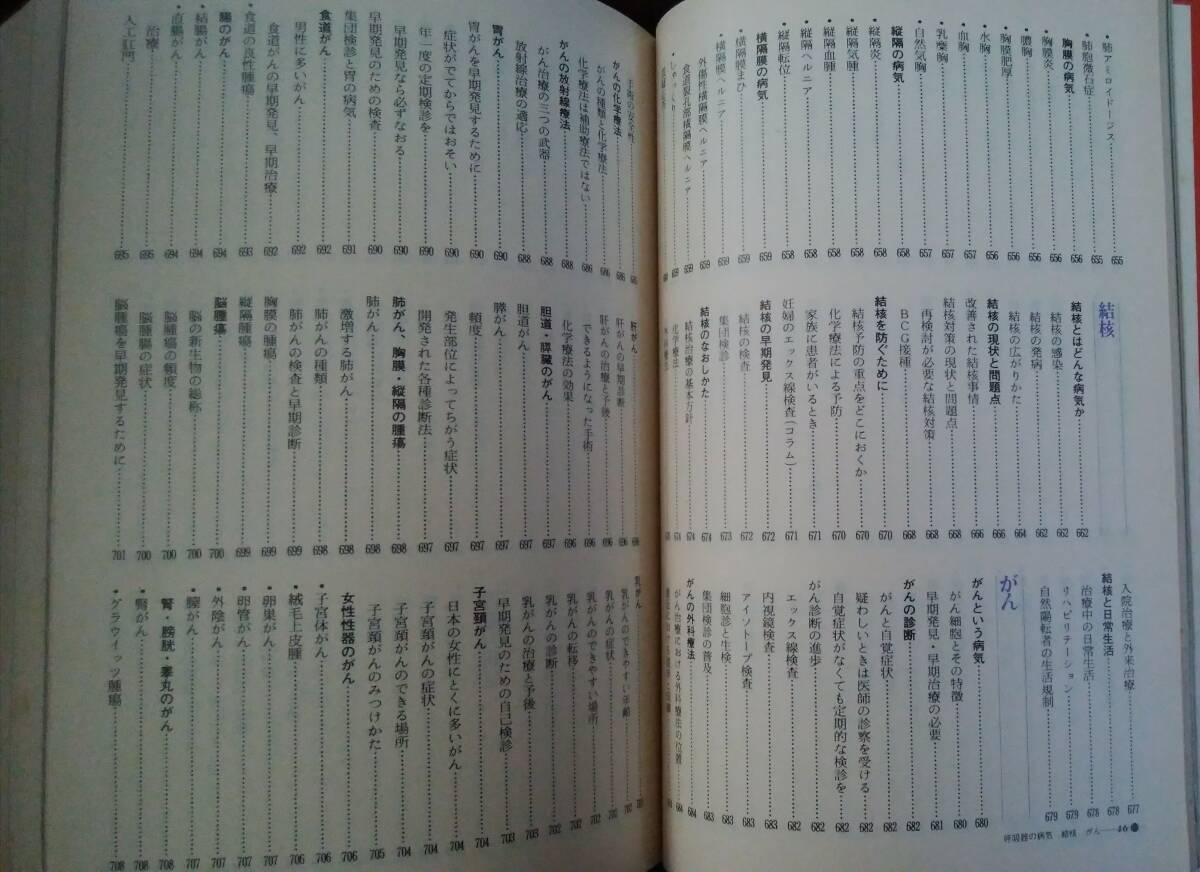 ・肺アミロイドージス 655
・肺胞微石症 655
胸膜の病気 656
・胸膜炎 656
・膿胸 656
・胸膜肥厚 656
・水胸 656
・血胸 656
・乳糜胸 657
・自然気胸 657
縦隔の病気 658
・縦隔炎 658
・縦隔気腫 658
・縦隔血腫 658
・縦隔ヘルニア 658
・縦隔転位 658
横隔膜の病気 659
・横隔膜まひ 659
・横隔膜ヘルニア 659
外傷性横隔膜ヘルニア 659
食道裂孔部横隔膜ヘルニア 659
・しゃっくり 659
結核
結核とはどんな病気か 662
結核の感染 662
結核の発病 662
結核の広がりかた 664
結核の現状と問題点 666
改善された結核事情 666
結核対策の現状と問題点 668
再検討が必要な結核対策 668
BCG接種 668
結核を防ぐために 670
結核予防の重点をどこにおくか 670
化学療法による予防 670
家族に患者がいるとき 671
妊婦のエックス線検査(コラム) 671
結核の早期発見 672
結核の検査 672
集団検診 673
結核のなおしかた 674
結核治療の基本方針 674
化学療法 674
入院治療と外来治療 677
結核と日常生活 678
治療中の日常生活 678
リハビリテーション 679
自然陽転者の生活規制 679
がん
がんという病気 680
がん細胞とその特徴 680
早期発見・早期治療の必要 681
がんの診断 682
がんと自覚症状 682
疑わしいときは医師の診察を受ける 682
自覚症状がなくても定期的な検診を 682
がん診断の進歩 682
エックス線検査 682
内視鏡検査 683
アイソトープ検査 683
細胞診と生検 683
集団検診の普及 683
がんの外科療法 684
がん治療における外科療法の位置 684
呼吸器の病気 結核 がん——46●
手術の安全性
がんへの化学療法 686
がんの種類と化学療法 686
化学療法は補助療法ではない 686
がんの放射線療法 688
がん治療の三つの武器 688
放射線治療の適応 688
胃がん 690
胃がんを早期発見するために 690
症状がでてからではおそい 690
年一度の定期検診を 690
早期発見なら必ずなおる 690
早期発見のための検査 690
集団検診と胃の病気 691
食道がん 692
男性に多いがん 692
食道がんの早期発見、早期治療 692
・食道の良性腫瘍 693
腸のがん 694
・結腸がん 694
・直腸がん 694
治療 695
人工肛門 695
肝がん 696
肝がんの早期診断 696
肝がんの治療と予後 696
できるようになった手術 696
化学療法の効果 696
胆道・膵臓のがん 697
胆道がん 697
膵がん 697
頻度 697
発生部位によってちがう症状 697
開発された各種診断法 697
肺がん、胸膜・縦隔の腫瘍 698
肺がん 698
激増する肺がん 698
肺がんの種類 698
肺がんの検査と早期診断 699
胸膜の腫瘍 699
縦隔腫瘍 699
脳腫瘍 700
脳の新生物の総称 700
脳腫瘍の頻度 700
脳腫瘍の症状 700
脳腫瘍を早期発見するために 701
乳がん
乳がんのできやすい年齢 702
乳がんのできやすい場所 702
乳がんの転移 702
乳がんの診断 702
乳がんの治療と予後 702
早期発見のための自己検診 703
子宮頸がん 704
日本の女性にとくに多いがん 704
子宮頸がんの症状 704
子宮頸がんのできる場所 704
子宮頸がんのみつけかた 705
女性性器のがん 706
・子宮体がん 706
・絨毛上皮腫 706
・卵巣がん 707
・卵管がん 707
・外陰がん 707
・腟がん 707
腎・膀胱・睾丸のがん 708
・腎がん 708
・グラウィッツ腫瘍 708